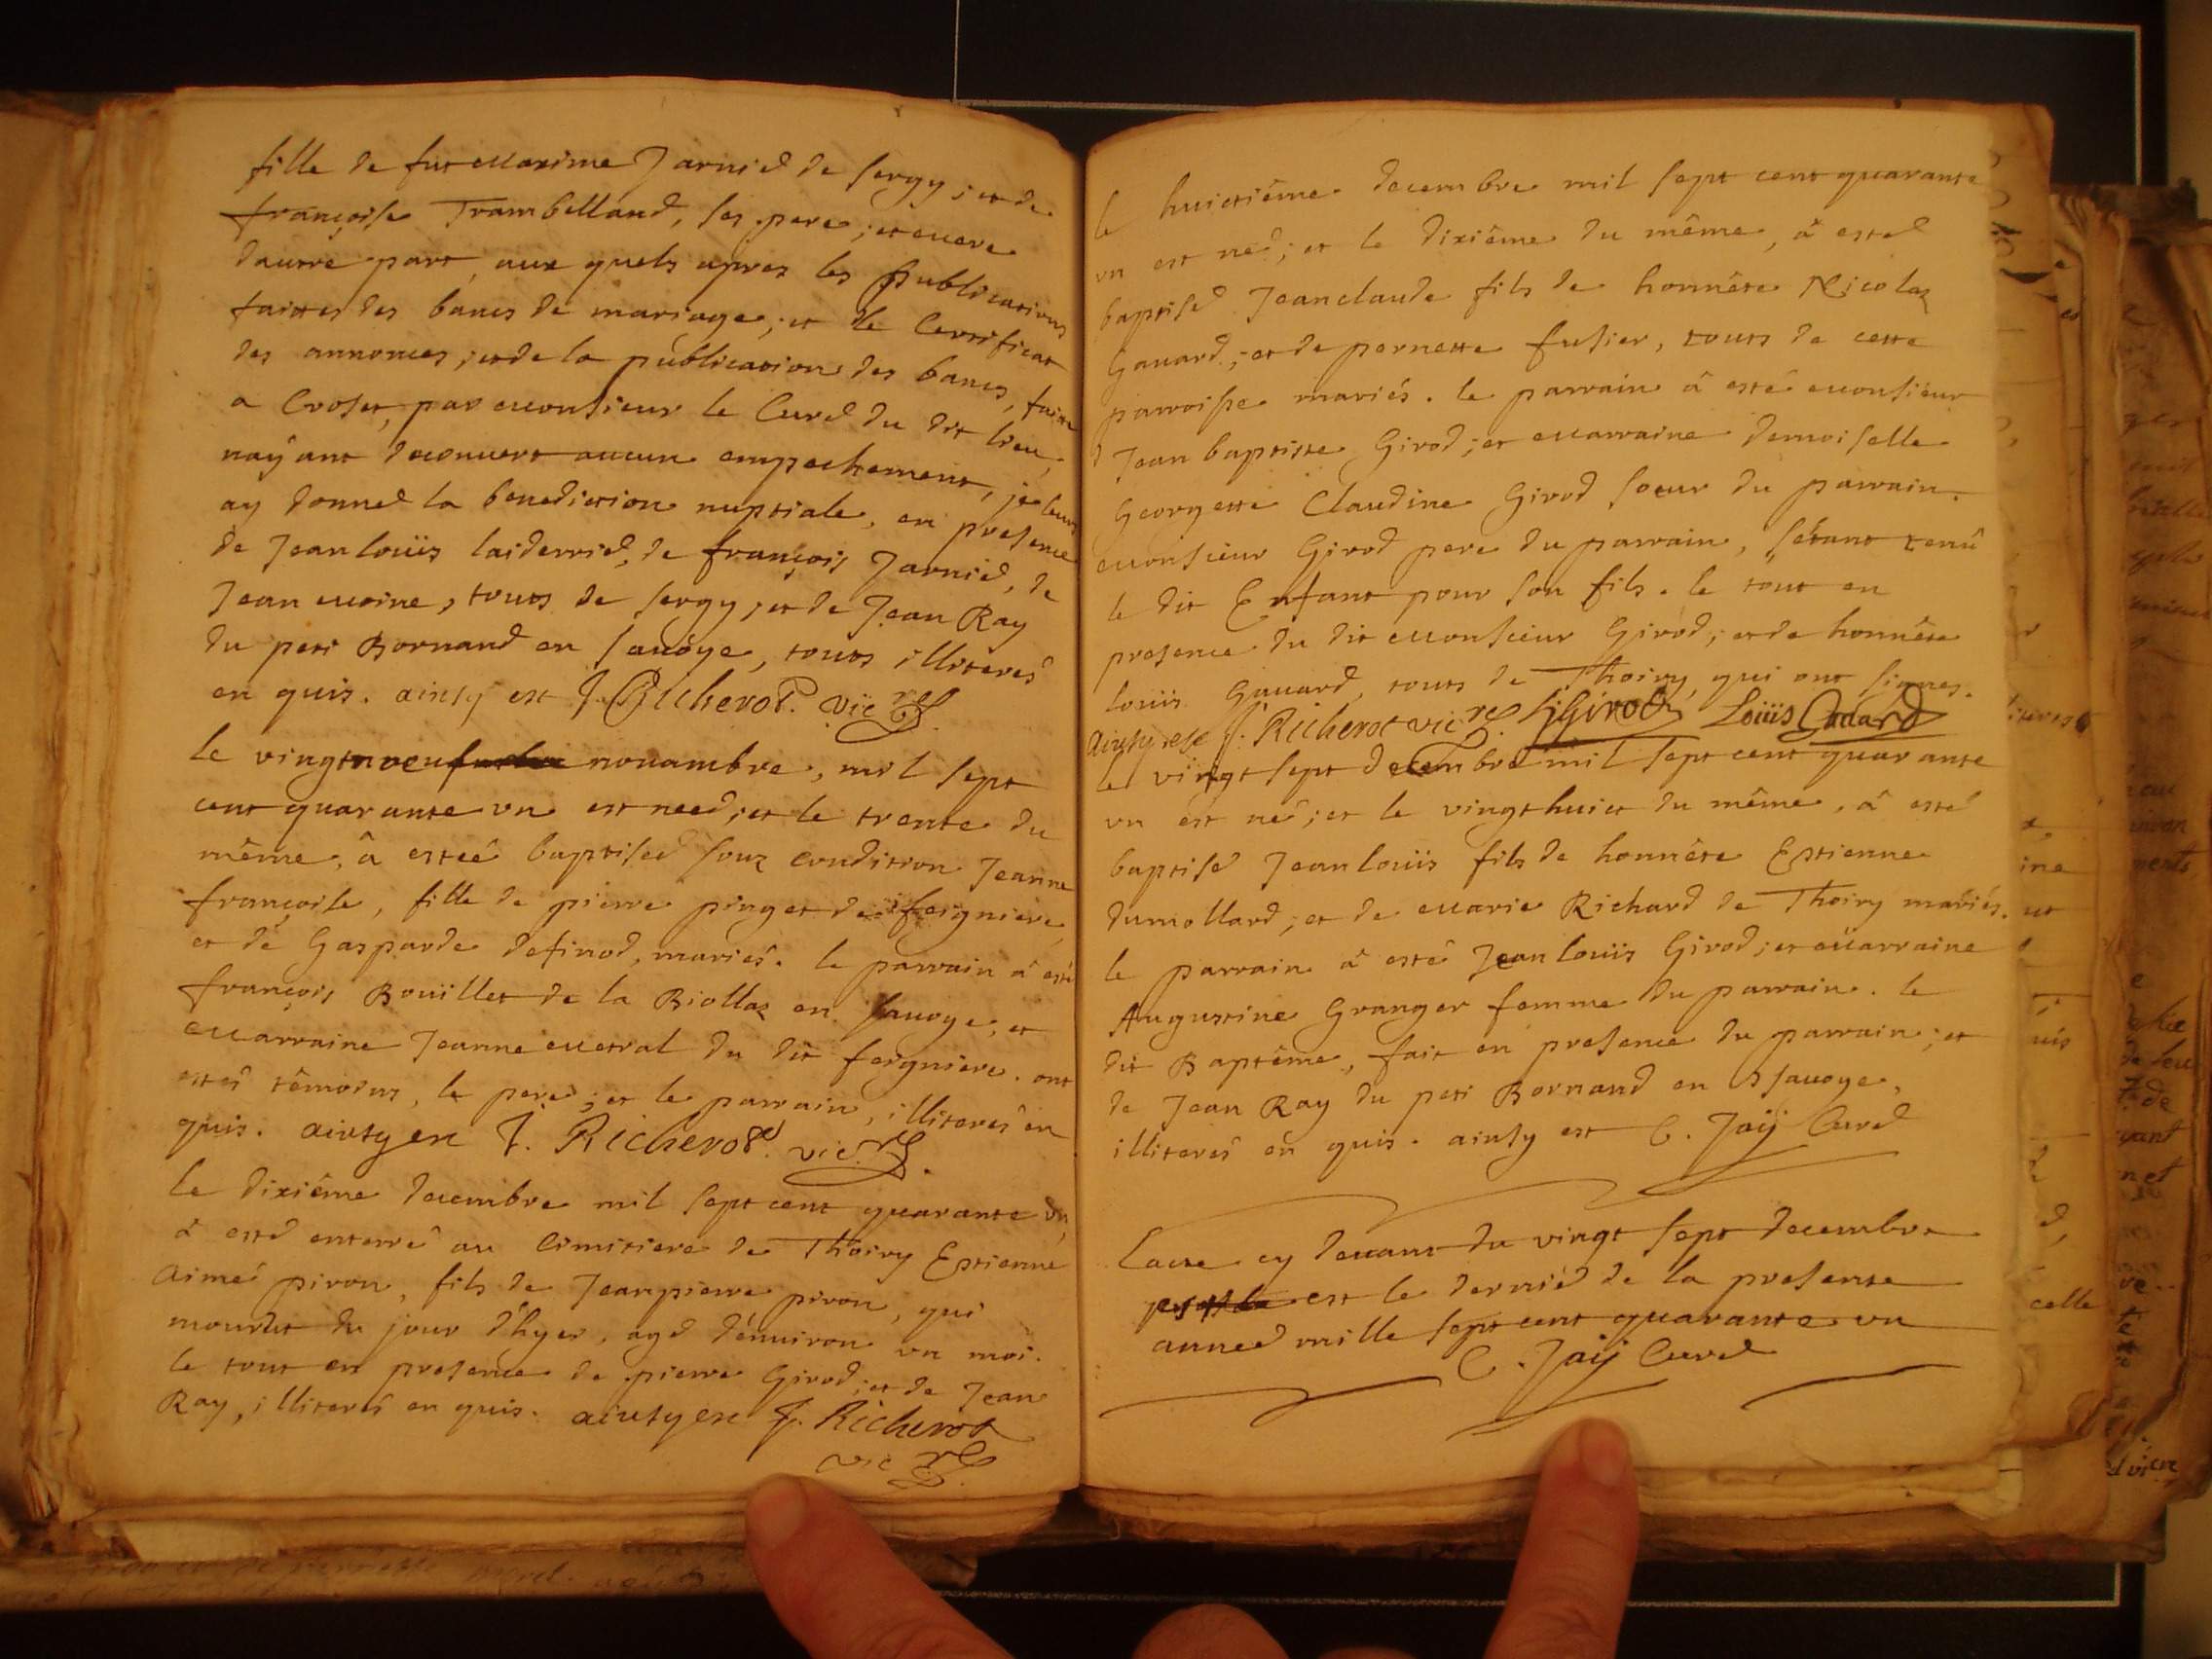 fille de fut Maxime Jarnied de sergy ; et de
françoise Trambelland, ses pere ; et mere
dautre part, aux quels apres les publications
faittes des bancs de mariage ; et le Certificat
des annonces ; et de la publication des bancs, faitte
a Croset, par monsieur le Curé du dit lieu,
nayant decouvert aucun empechement, je leurs
ay donneé la benediction nuptiale, en presence
de Jean loüis laiderried, de françois Jarnied, de
Jean moine, touts de sergy ; et de Jean Ray
du peti Bornand en savoye, touts illiteres
en quis. ainsy est J. Richerot. vic re
le vingtnoeu novambre, mil sept
cent quarante vn est need ; et le trente du
même, â esteé baptiseé souz condition Jeanne
françoise, fille de pierre pinget de feigniere
et de Gasparde definod, mariés. le parrain â esté
françois Bouillet de la Biollaz en savoye, et
marraine Jeanne mestral du dit feigniere. ont
estés têmoins, le pere ; et le parrain, illiterés en
quis. ainsy est J. Richerot. vic. re
le dixiême decembre mil sept cent quarante vn,
â esté enterré au Cimitiere de Thoiry Estienne
Aimé piron, fils de Jeanpierre piron, qui
mourut du jour d'hyer, agé d'énuiron vn moi.
le tout en presence de pierre Girod ; et de Jean
Ray, illiterés en quis. ainsy est J. Richerot
vic re
le huictiême decembre mil sept cent quarante
vn est né ; et le dixiême du même, â esté
baptisé Jeanclaude fils de honnête Nicolaz
Gauard ; et de pernette fusier, touts de cette
parroisse mariés. le parrain â esté monsieur
Jean baptiste Girod ; et marraine demoiselle
Georgette Claudine Girod soeur du parrain.
monsieur Girod pere du parrain, sétant tenû
le dit Enfant pour son fils. le tout en
presence du dit monsieur Girod ; et de honnête
loüis Gauard, touts de Thoiry, qui ont signes.
ainsy est J. Richerot vic re Girod Loüis Gauard
le vingt sept decembre mil sept cent quarante
vn est né ; et le vingthuict du même, â esté
baptisé Jean loüis fils de honnête Estienne
dumollard ; et de marie Richard de Thoiry mariés.
le parrain â esté Jean loüis Girod ; et marraine
Augustine Granger femme du parrain. le
dit Baptême, fait en presence du parrain ; et
de Jean Ray du peti Bornand en savoye,
illiterés en quis. ainsy est C. Jaÿ Curé
Lacte cy deuant du vingt sept decembre
est le dernied de la presente
anneé mille sept cent quarante vn
C. Jaÿ Curé